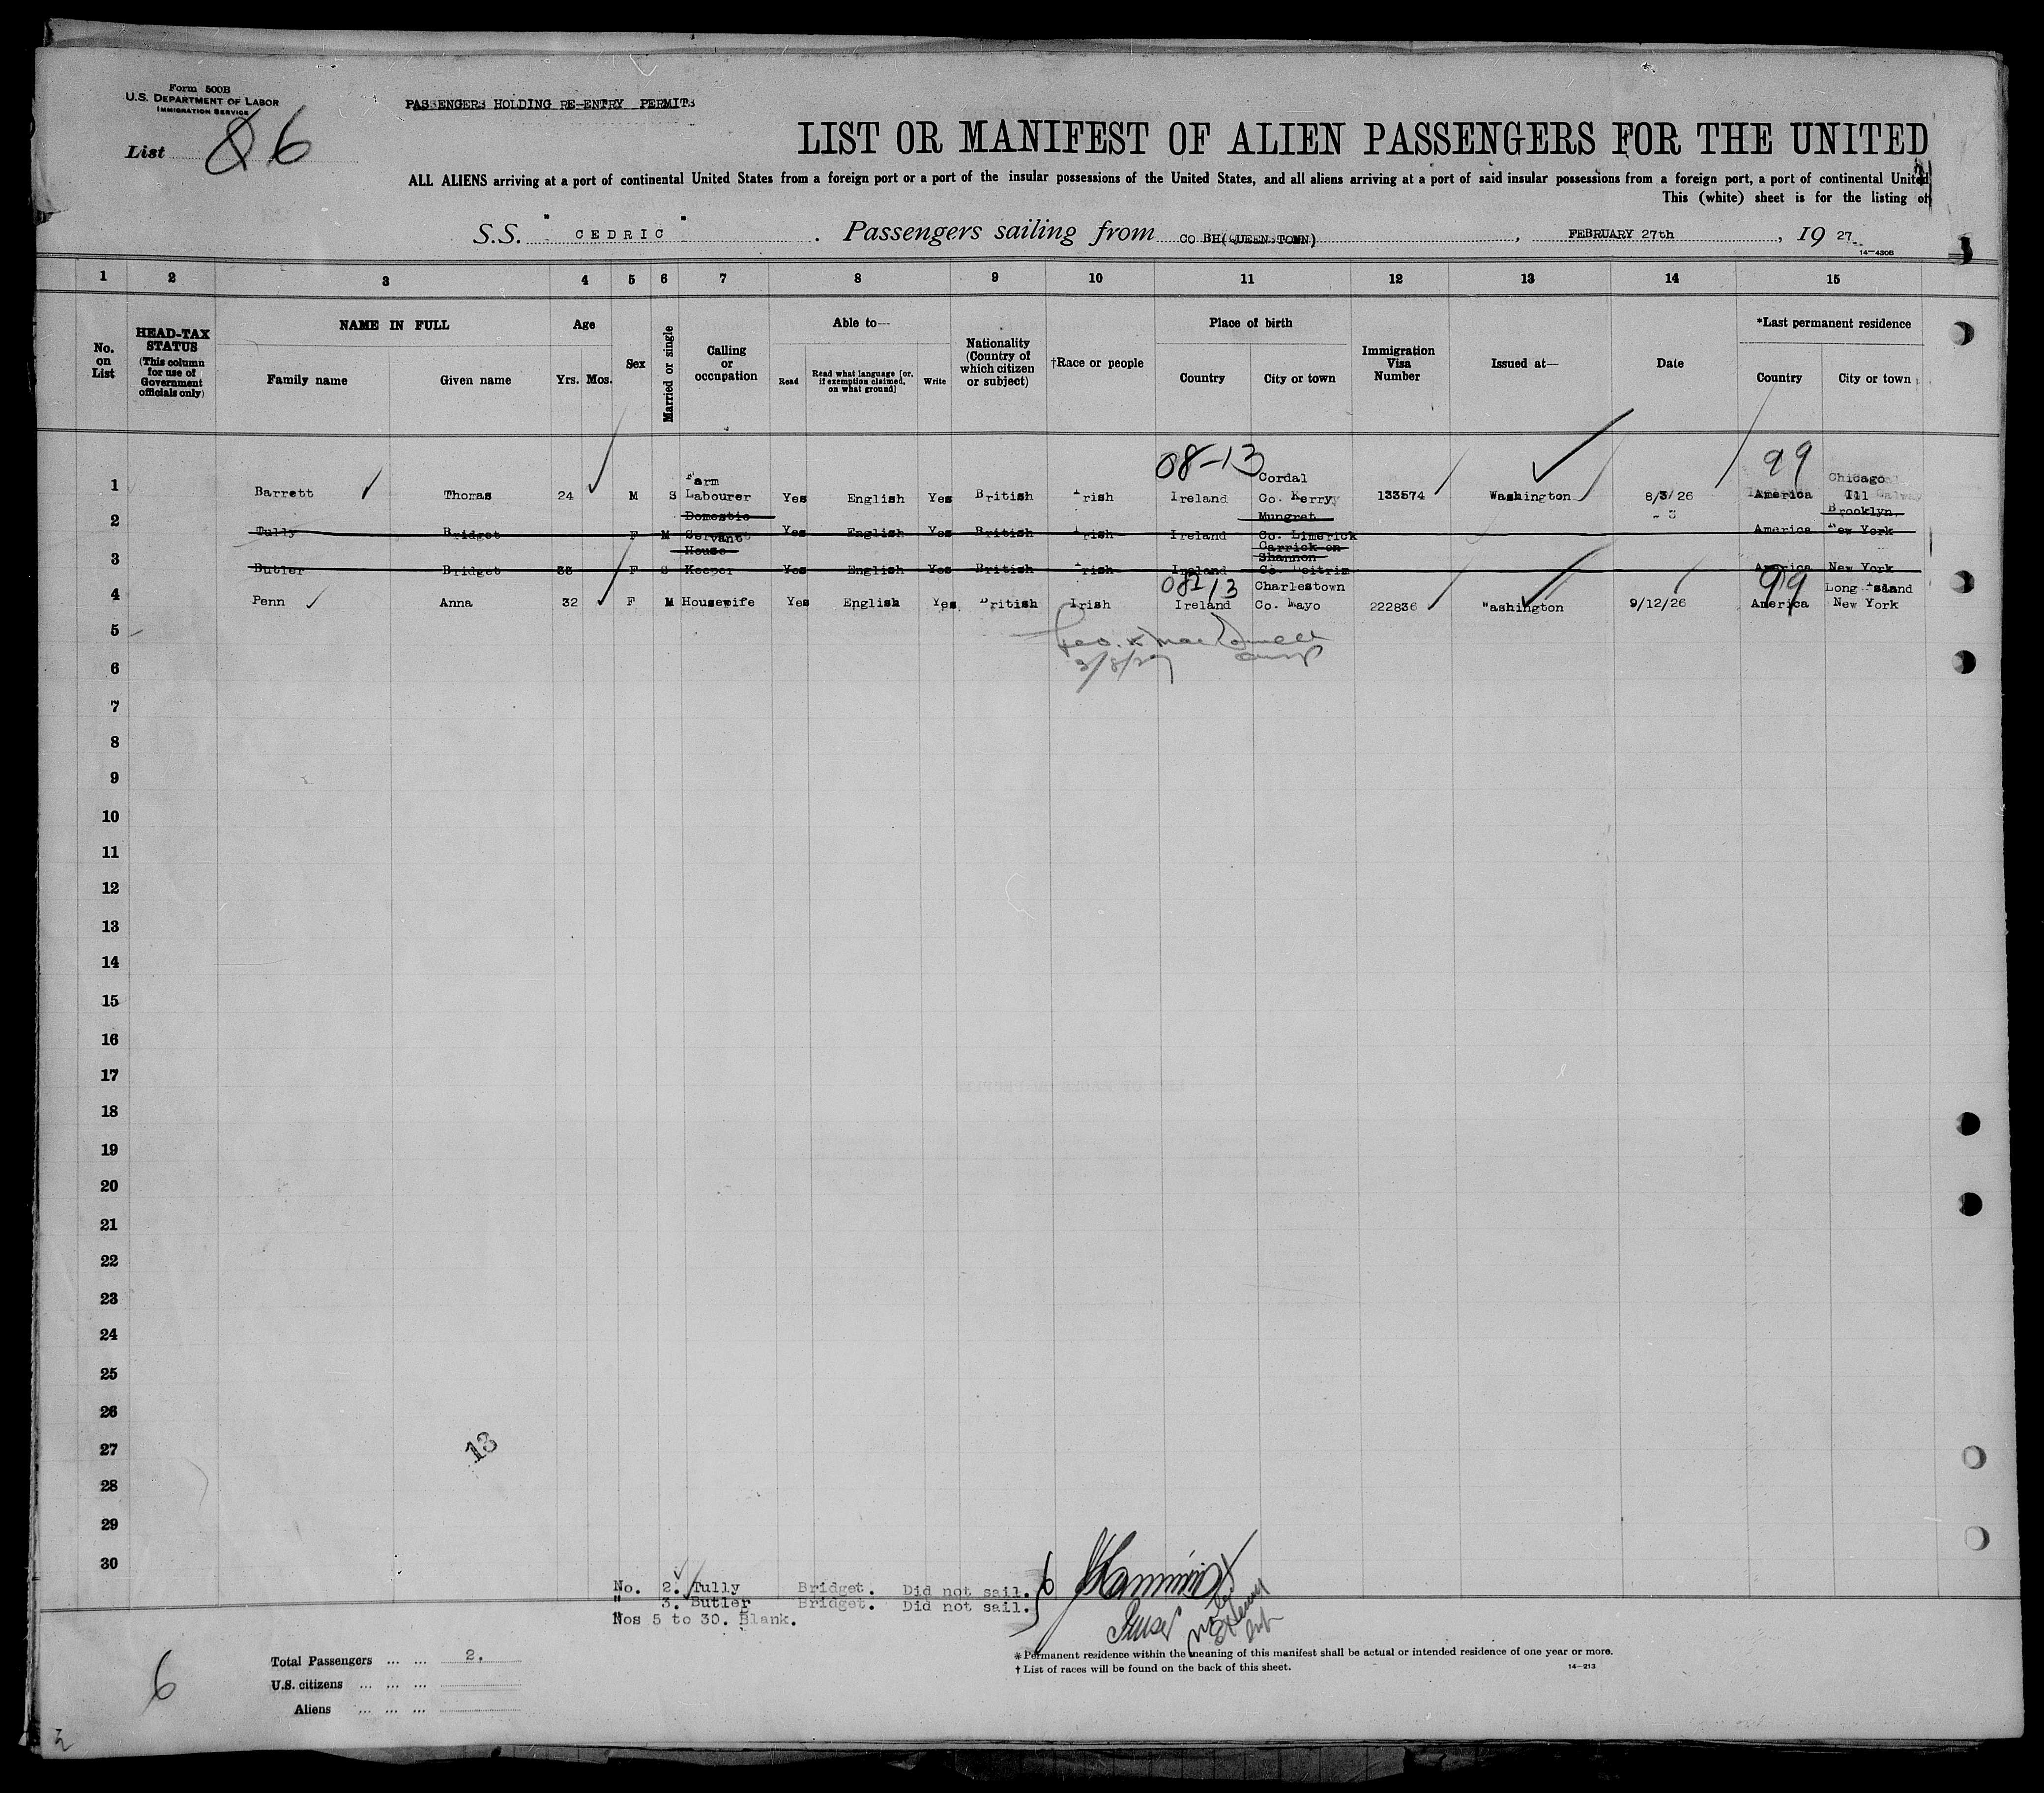 Form 500B
U.S. DEPARTMENT OF LABOR
IMMIGRATION SERVICE
PASSENGERS HOLDING RE-ENTRY PERMITS
List 6
LIST OR MANIFEST OF ALIEN PASSENGERS FOR THE UNITED
ALL ALIENS arriving at a port of continental United States from a foreign port or a port of the insular possessions of the United States, and all aliens arriving at a port of said insular possessions from a foreign port, a port of continental United
This (white) sheet is for the listing of
S.S. "CEDRIC". Passengers sailing from COBH(QUEENSTOWN), FEBRUARY 27th, 1927
14-430B
1 2 3 4 5 6 7 8 9 10 11 12 13 14 15
No. on List
HEAD-TAX STATUS (This column for use of Government officials only)
NAME IN FULL
Family name Given name
Age
Yrs. Mos.
Sex
Married or single
Calling or occupation
Able to—
Read Read what language [or, if exemption claimed, on what ground] Write
Nationality (Country of which citizen or subject)
†Race or people
Place of birth
Country City or town
Immigration Visa Number
Issued at—
Date
*Last permanent residence
Country City or town
08-13 99
1 Barrett Thomas 24 M S Farm Labourer Yes English Yes British Irish Ireland Cordal Co. Kerry 133574 Washington 8/3/26 America Chicago Ill
2 Tully Bridget F M Domestic Servant Yes English Yes British Irish Ireland Mungret Co. Limerick America Brooklyn New York
3 Butler Bridget 33 F S House Keeper Yes English Yes British Irish Ireland Carrick on Shannon Co. Leitrim America New York
99
4 Penn Anna 32 F M Housewife Yes English Yes British Irish Ireland Charlestown Co. Mayo 222836 Washington 9/12/26 America Long Island New York
5
3/8/27
6
7
8
9
10
11
12
13
14
15
16
17
18
19
20
21
22
23
24
25
26
27
13
28
29
30
No. 2. Tully Bridget. Did not sail.
" 3. Butler Bridget. Did not sail.
Nos 5 to 30. Blank.
* Permanent residence within the meaning of this manifest shall be actual or intended residence of one year or more.
† List of races will be found on the back of this sheet. 14-213
Total Passengers ... ... 2.
U.S. citizens ... ... ...
Aliens ... ... ...
6